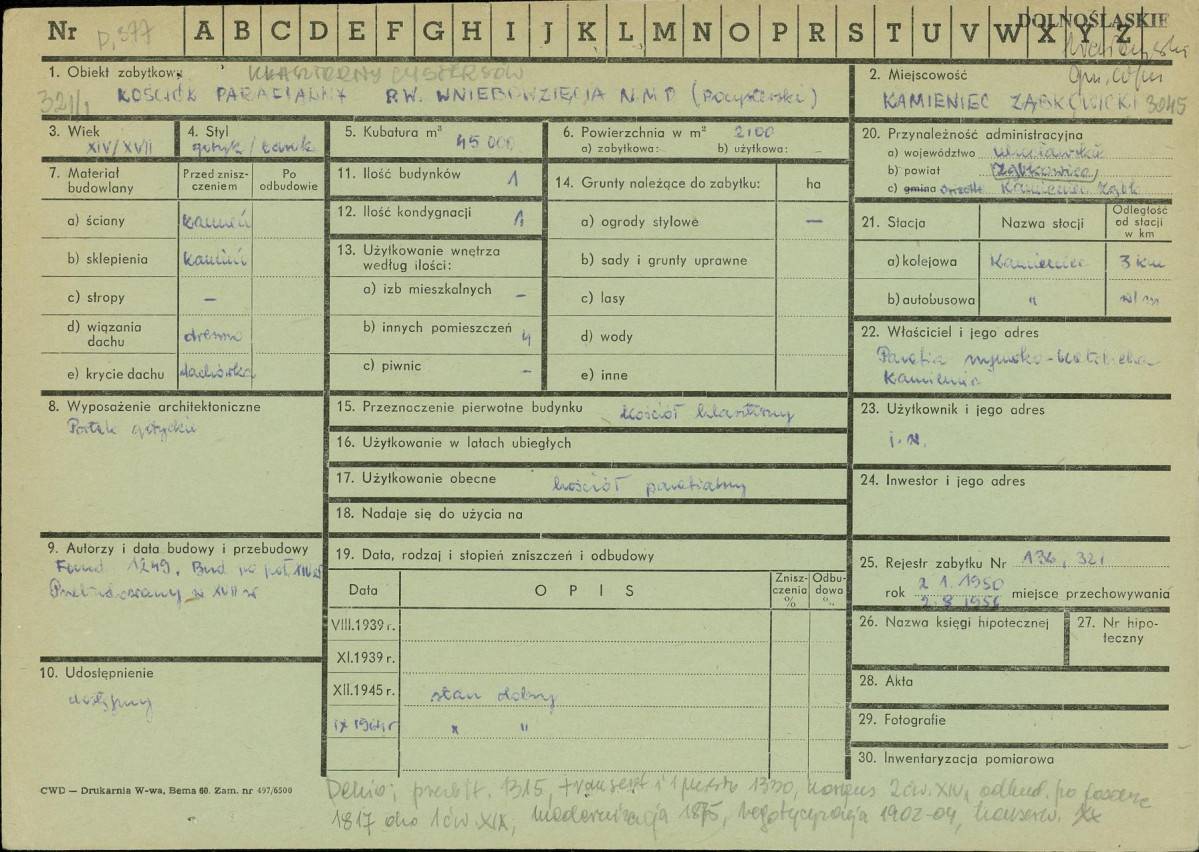 Nr A B C D E F G H I J K L M N O P R S T U V W X Y Z
DOLNOŚLĄSKIE
1. Obiekt zabytkowy KLASZTORNY CYSTERSÓW
321/1 KOŚCIÓŁ PARAFIALNY P.W. WNIEBOWZIĘCIA N.M.P (pocysterski)
2. Miejscowość
KAMIENIEC ZĄBKOWICKI 3045
3. Wiek
XIV/XVII
4. Styl
gotyk / barok
5. Kubatura m³ 45 000
6. Powierzchnia w m² 2100
a) zabytkowa: b) użytkowa:
7. Materiał budowlany
Przed zniszczeniem
Po odbudowie
a) ściany kamień
b) sklepienia kamień
c) stropy –
d) wiązania dachu drewno
e) krycie dachu dachówka
8. Wyposażenie architektoniczne
Portale gotyckie
9. Autorzy i data budowy i przebudowy
Fund. 1249. Bud. po poł. XIV w
Przebudowany w XVII w
10. Udostępnienie
dostępny
11. Ilość budynków 1
12. Ilość kondygnacji 1
13. Użytkowanie wnętrza
według ilości:
a) izb mieszkalnych –
b) innych pomieszczeń 4
c) piwnic –
14. Grunty należące do zabytku: ha
a) ogrody stylowe –
b) sady i grunty uprawne
c) lasy
d) wody
e) inne
15. Przeznaczenie pierwotne budynku kościół klasztorny
16. Użytkowanie w latach ubiegłych
17. Użytkowanie obecne kościół parafialny
18. Nadaje się do użycia na
19. Data, rodzaj i stopień zniszczeń i odbudowy
Data
OPIS
Zniszczenia %
Odbudowa %
VIII.1939 r.
XI.1939 r.
XII.1945 r. stan dobry
IX 1964 r " "
20. Przynależność administracyjna
a) województwo wrocławskie
b) powiat Ząbkowice
c) gmina osiedle Kamieniec Ząbk
21. Stacja
Nazwa stacji
Odległość od stacji w km
a) kolejowa Kamieniec 3 km
b) autobusowa "
22. Właściciel i jego adres
Parafia rzymsko-katolicka
Kamieniec
23. Użytkownik i jego adres
j.w.
24. Inwestor i jego adres
25. Rejestr zabytku Nr 136, 321
rok 2 1. 1950 miejsce przechowywania
2.8 1956
26. Nazwa księgi hipotecznej
27. Nr hipoteczny
28. Akta
29. Fotografie
30. Inwentaryzacja pomiarowa
CWD — Drukarnia W-wa, Bema 60. Zam. nr 497/6500
Dehio: prezbit. 1315, transept i 1 przęsło 1330, korpus 2 ćw. XIV, odbud. po pożarze
1817 do 1 ćw. XIX, modernizacja 1875, regotycyzacja 1902-04, konserw. XX